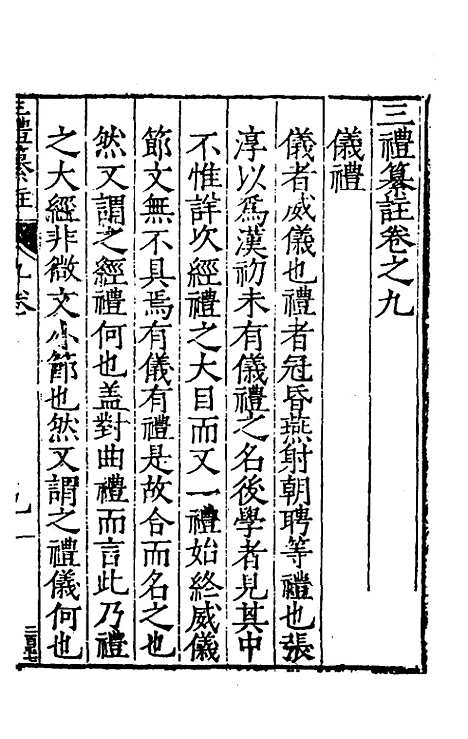 三禮纂註卷之九
儀禮
儀者威儀也禮者冠昏燕射朝聘等禮也張
淳以爲漢初未有儀禮之名後學者見其中
不惟詳次經禮之大目而又一禮始終威儀
節文無不具焉有儀有禮是故合而名之也
然又謂之經禮何也盖對曲禮而言此乃禮
之大經非微文小節也然又謂之禮儀何也
三禮纂註
九卷